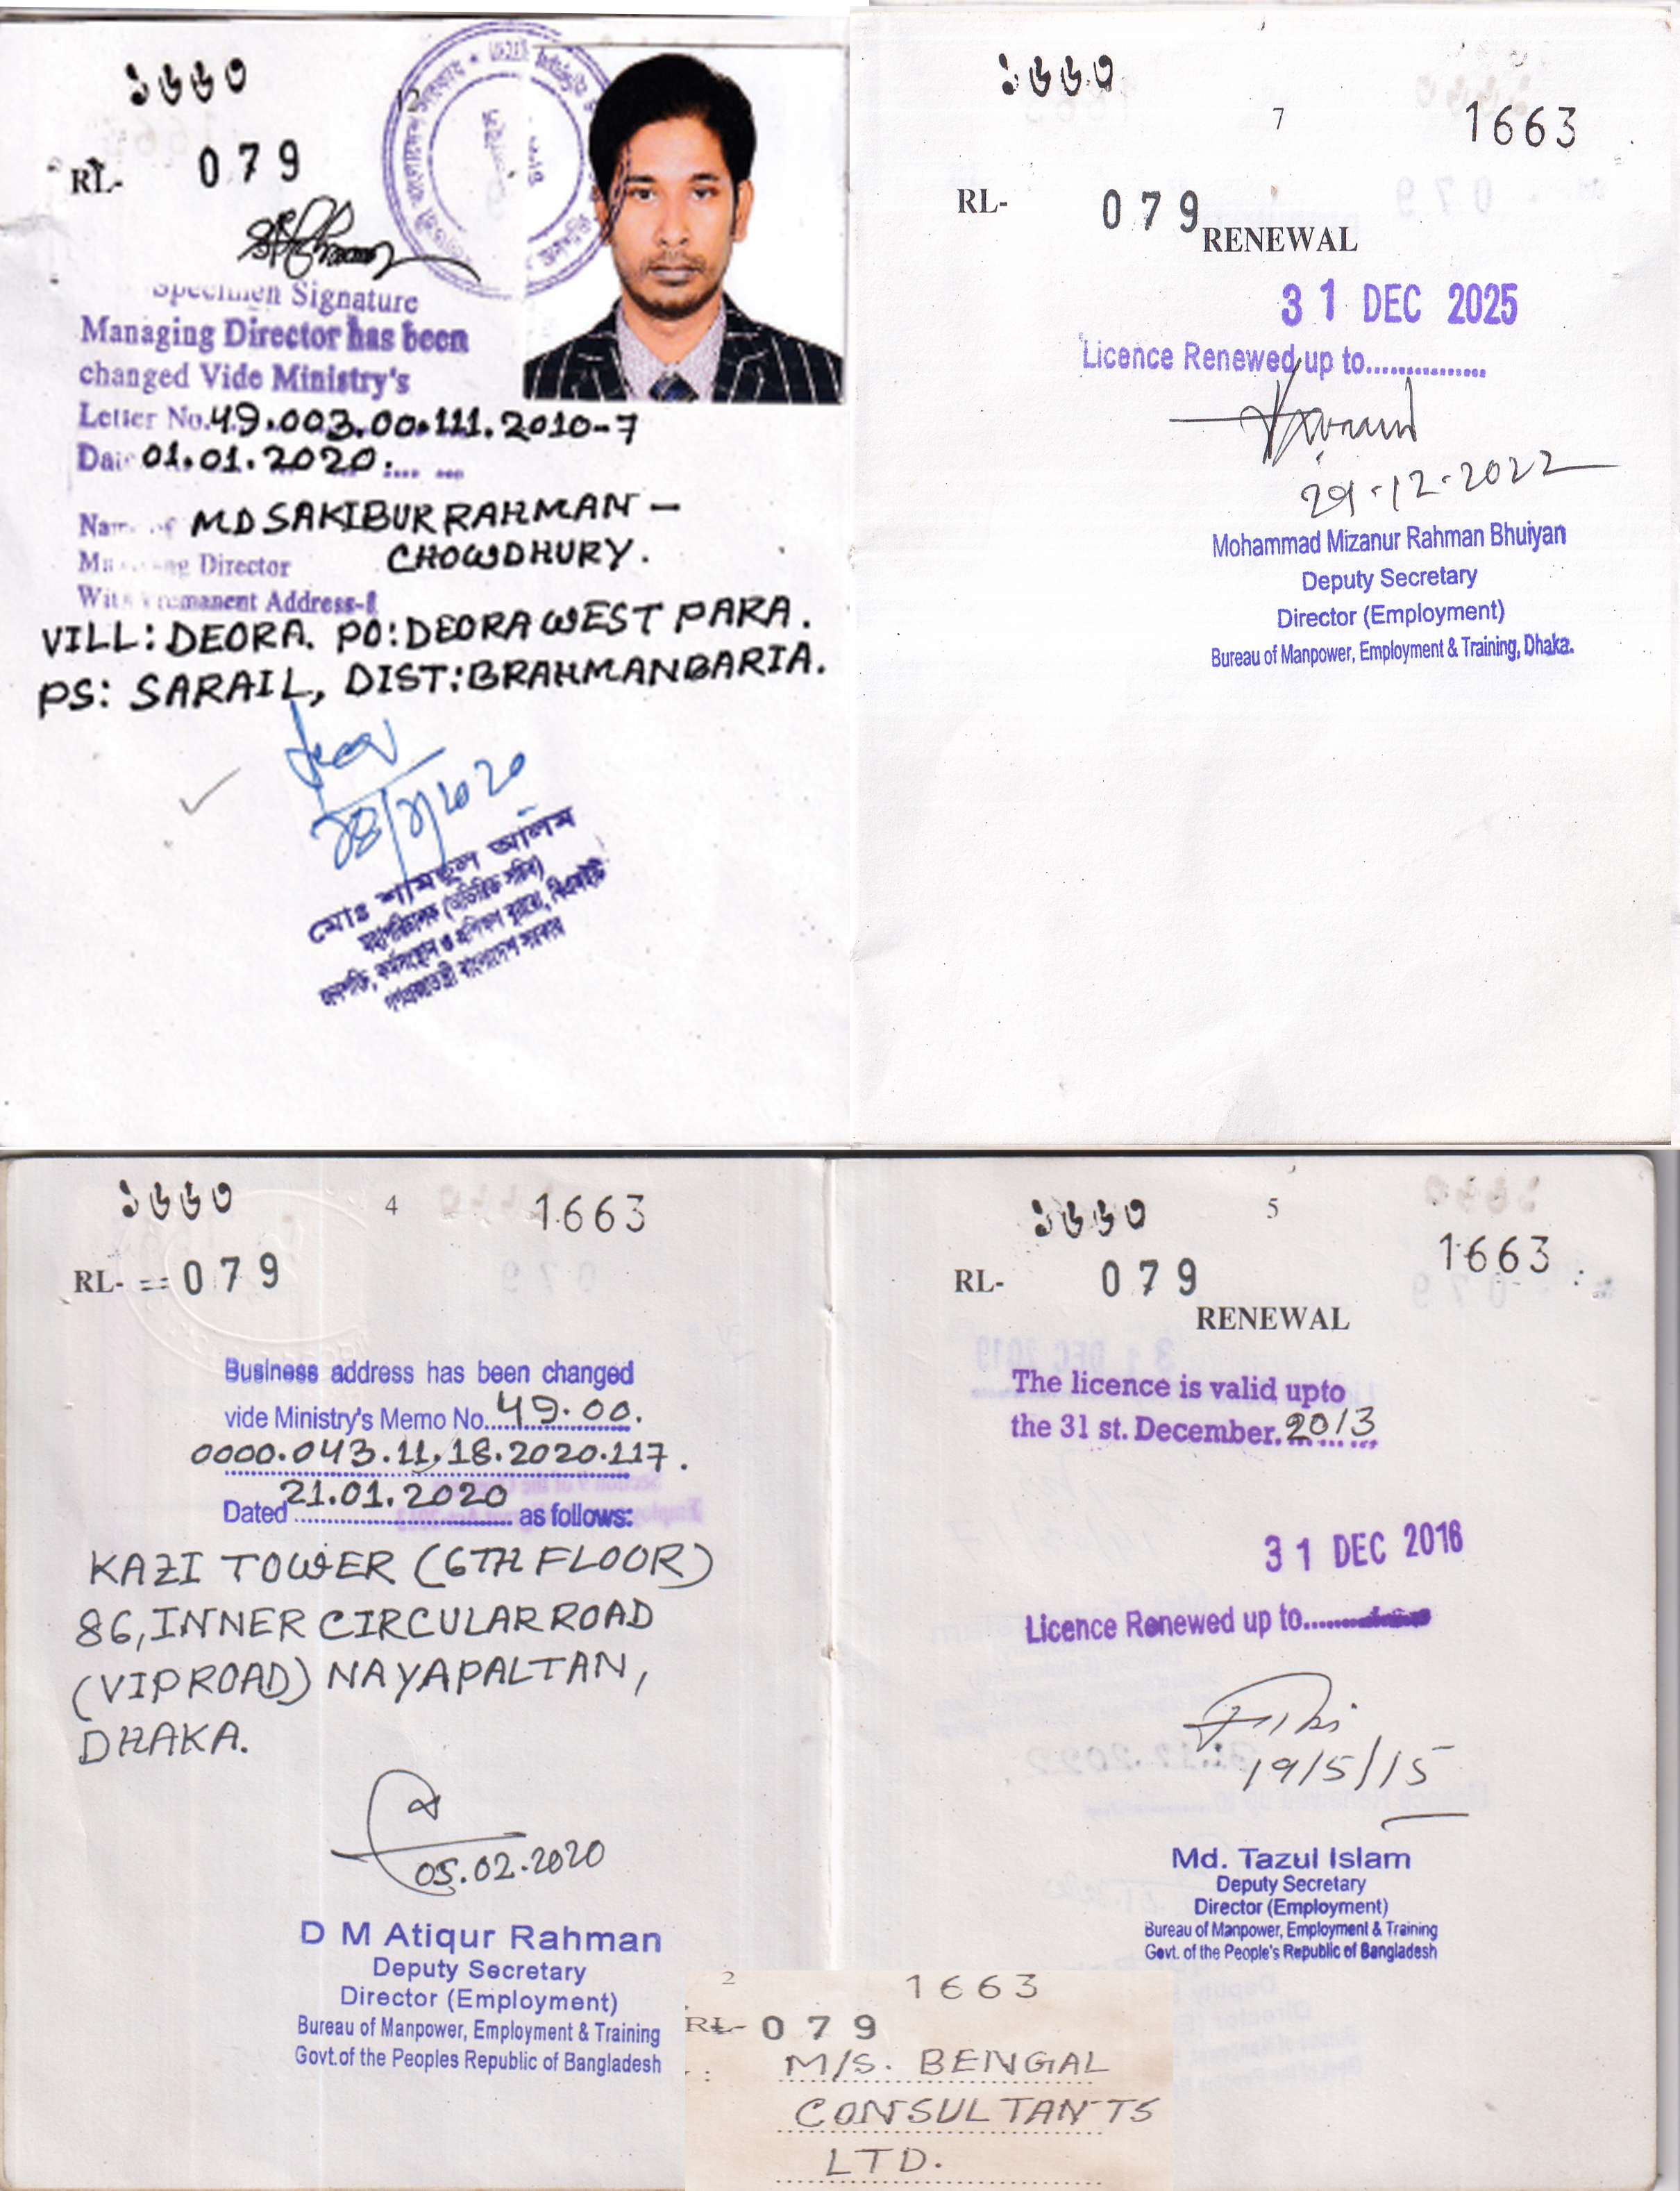 ১৬৬৩
12
RL- 079
Specimen Signature
Managing Director has been
changed Vide Ministry's
Letter No.49.003.00.111.2010-7
Date 01.01.2020
Name of MD SAKIBUR RAHMAN -
Managing Director CHOWDHURY.
With Permanent Address-
VILL: DEORA. PO: DEORA WEST PARA.
PS: SARAIL, DIST: BRAHMANBARIA.
মোঃ শামছুল আলম
মহাপরিচালক (অতিরিক্ত সচিব)
জনশক্তি, কর্মসংস্থান ও প্রশিক্ষণ ব্যুরো, বিএমইটি
গণপ্রজাতন্ত্রী বাংলাদেশ সরকার
১৬৬৩
7
1663
RL- 079
RENEWAL
31 DEC 2025
Licence Renewed up to...............
29-12-2022
Mohammad Mizanur Rahman Bhuiyan
Deputy Secretary
Director (Employment)
Bureau of Manpower, Employment & Training, Dhaka.
১৬৬৩
4
1663
RL- 079
Business address has been changed
vide Ministry's Memo No....49.00.
0000.043.11.18.2020.117.
Dated 21.01.2020 as follows:
KAZI TOWER (6TH FLOOR)
86, INNER CIRCULAR ROAD
(VIP ROAD) NAYAPALTAN,
DHAKA.
05.02.2020
D M Atiqur Rahman
Deputy Secretary
Director (Employment)
Bureau of Manpower, Employment & Training
Govt.of the Peoples Republic of Bangladesh
১৬৬৩
5
1663
RL- 079
RENEWAL
The licence is valid upto
the 31 st. December. 2013
31 DEC 2016
Licence Renewed up to........
19/5/15
Md. Tazul Islam
Deputy Secretary
Director (Employment)
Bureau of Manpower, Employment & Training
Govt. of the People's Republic of Bangladesh
2
1663
RL- 079
M/S. BENGAL
CONSULTANTS
LTD.